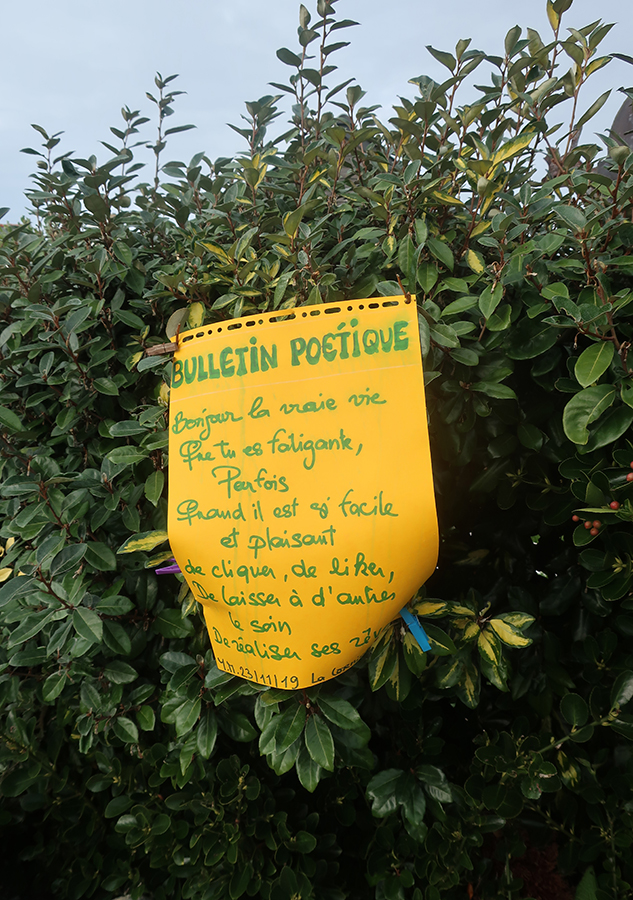 BULLETIN POÉTIQUE
Bonjour la vraie vie
Que tu es fatigante,
Parfois
Quand il est si facile
et plaisant
de cliquer, de liker,
De laisser à d'autres
le soin
De réaliser ses
23/11/19 La